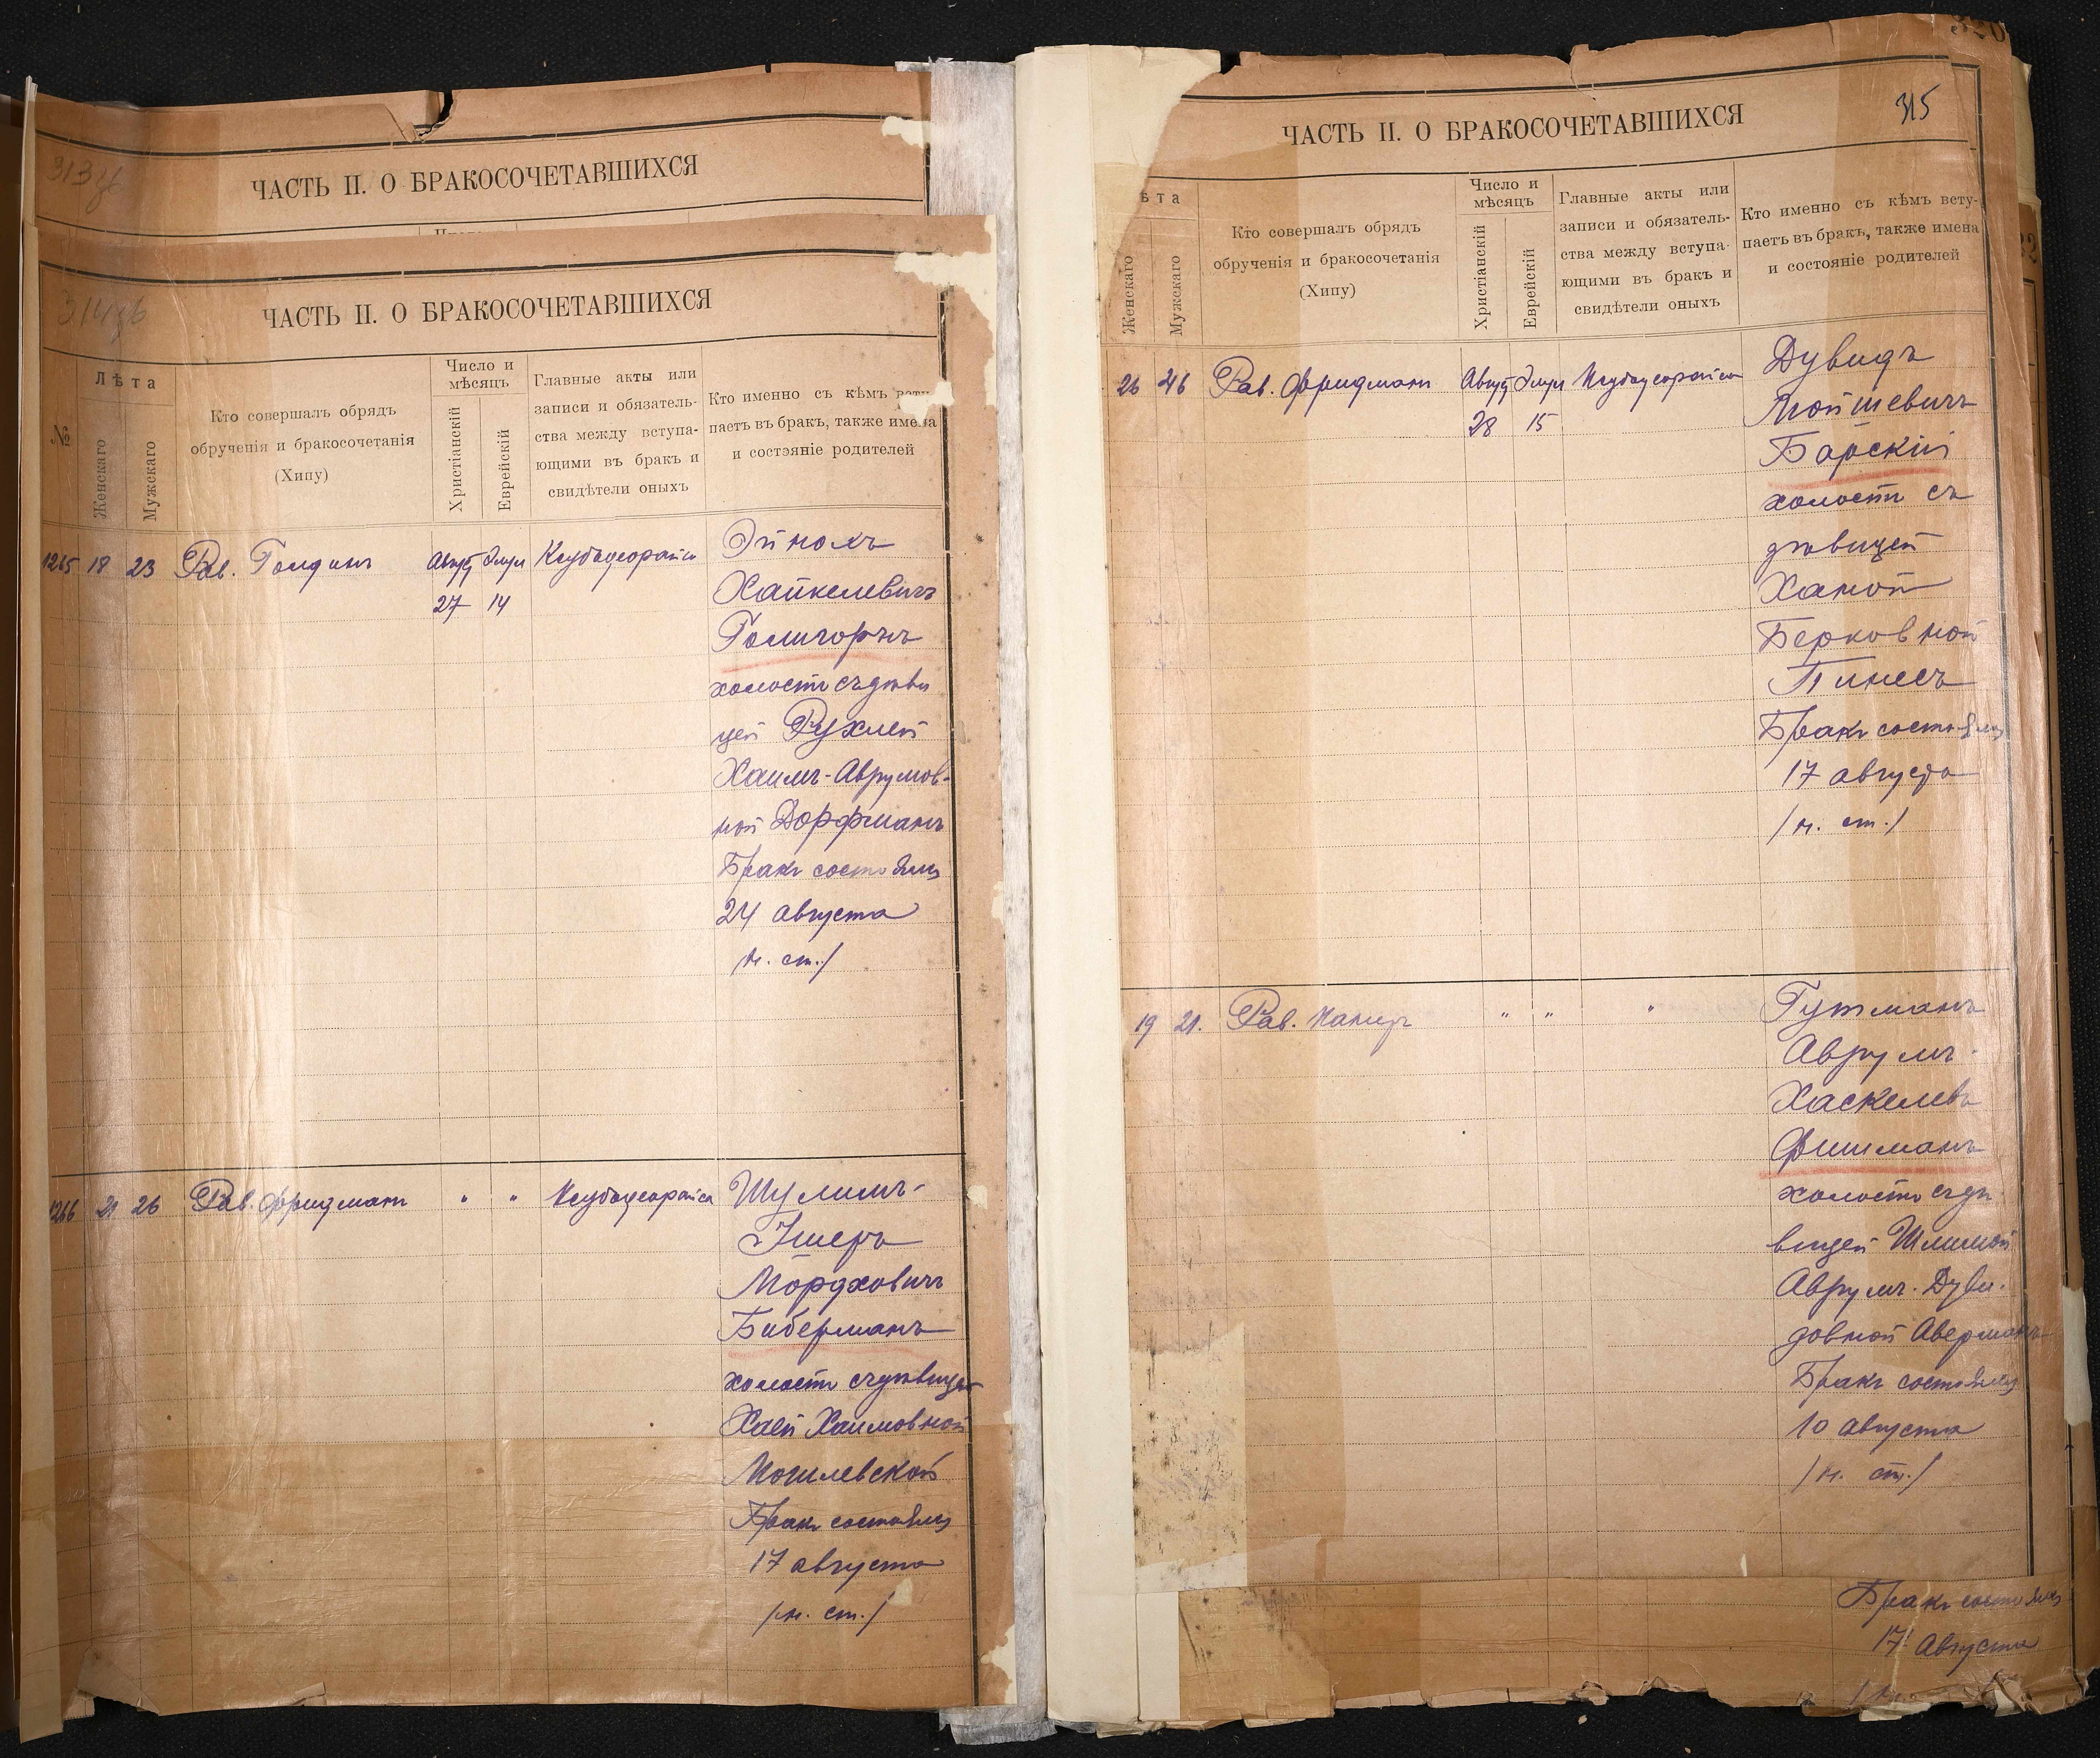 313об
ЧАСТЬ II. О БРАКОСОЧЕТАВШИХСЯ
314об
ЧАСТЬ II. О БРАКОСОЧЕТАВШИХСЯ
№
Лѣта
Женскаго
Мужскаго
Кто совершалъ обрядъ
обрученія и бракосочетанія
(Хипу)
Число и
мѣсяцъ
Христіанскій
Еврейскій
Главные акты или
записи и обязатель-
ства между вступа-
ющими въ бракъ и
свидѣтели оныхъ
Кто именно съ кѣмъ всту-
паетъ въ бракъ, также имена
и состояніе родителей
1265 18 23 Рав. Голдинъ
Август Элул
27 14
Ксубадеорайса
Эйнохъ
Хайкелевичъ
Голигорнъ
холостъ съ дѣви
цей Рухлей
Хаимъ-Аврумов-
ной Дорфманъ
Бракъ состоялся
24 августа
/н. ст./
1266 21 26 Рав. Фридманъ " " Ксубадеорайса
Шулимъ-
Ушеръ
Мордховичъ
Биберманъ
холостъ съ дѣвицей
Хаей Хаимовной
Могилевской
Бракъ состоялся
17 августа
/н. ст./
315
ЧАСТЬ II. О БРАКОСОЧЕТАВШИХСЯ
ѣта
Женскаго
Мужскаго
Кто совершалъ обрядъ
обрученія и бракосочетанія
(Хипу)
Число и
мѣсяцъ
Христіанскій
Еврейскій
Главные акты или
записи и обязатель-
ства между вступа-
ющими въ бракъ и
свидѣтели оныхъ
Кто именно съ кѣмъ всту-
паетъ въ бракъ, также имена
и состояніе родителей
26 46 Рав. Фридманъ
Август Элул
28 15
Ксубадеорайса
Дувидъ
Мойшевичъ
Барскій
холостъ съ
дѣвицей
Ханой
Берковной
Пинесъ
Бракъ состоялся
17 августа
/н. ст./
19 21. Рав. " " "
Гутманъ
Аврумъ-
Хаскелевъ
Фишманъ
холостъ съ дѣ
вицей Шлимой
Аврумъ-Дуви-
довной Аверманъ
Бракъ состоялся
10 августа
/н. ст./
Бракъ состоялся
17 Августа